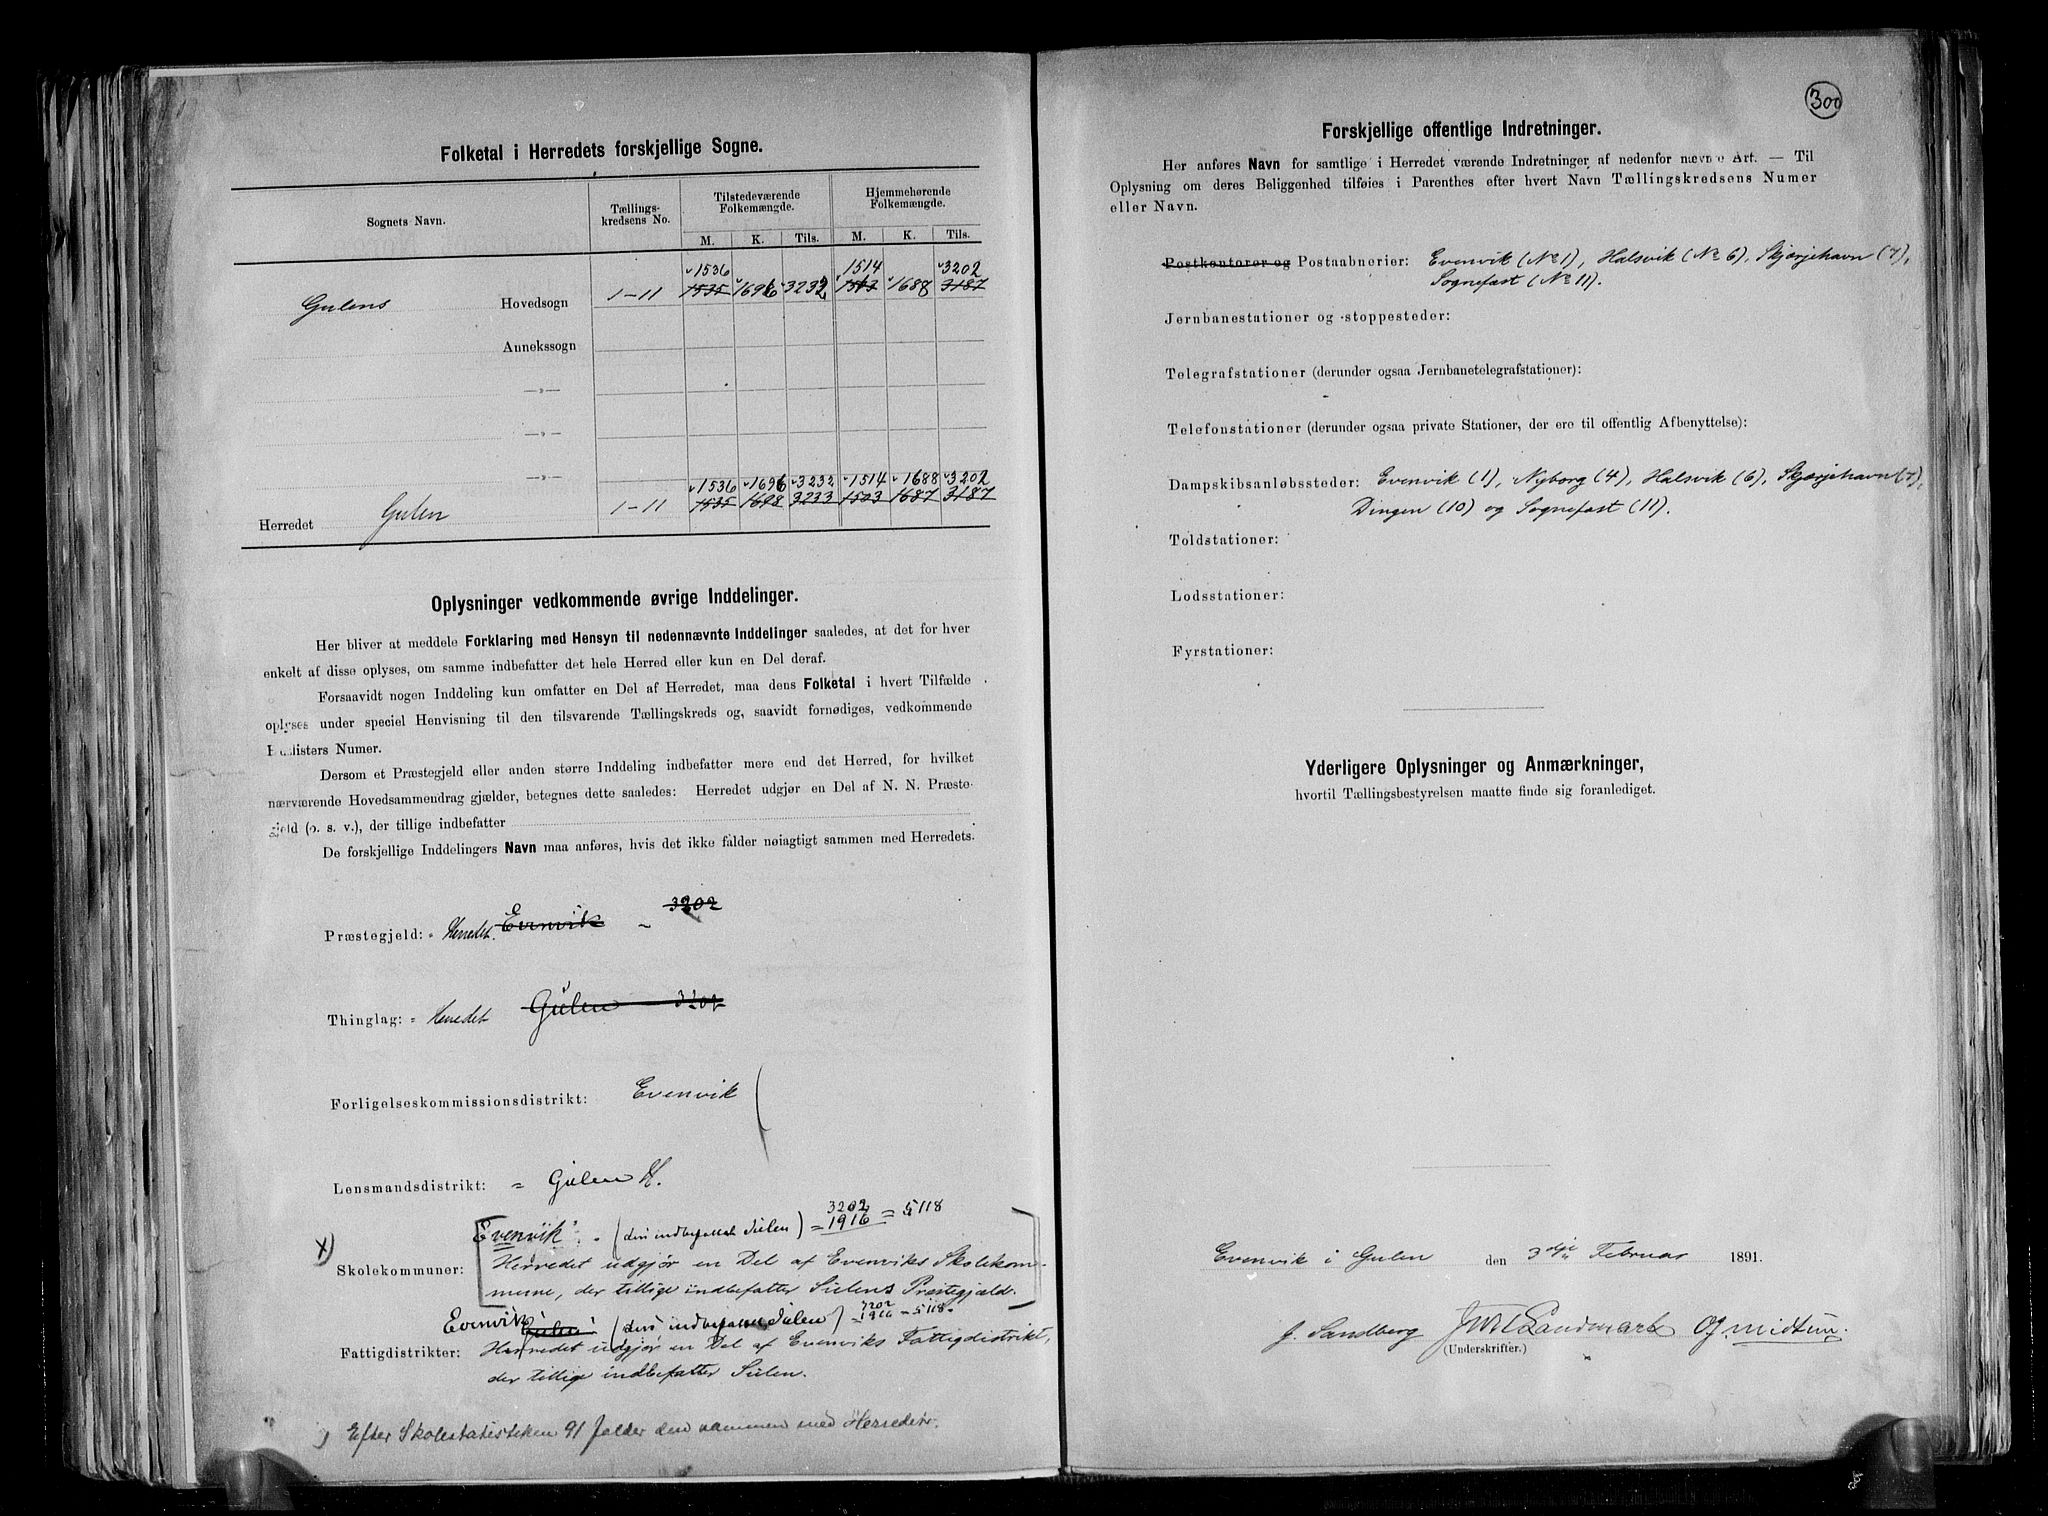 Folketal i Herredets forskjellige Sogne.
Sognets Navn. Tællings-kredsens No. Tilstedeværende Folkemængde. Hjemmehørende Folkemængde.
M. K. Tils. M. K. Tils.
1536 1514 3202
Gulens Hovedsogn 1-11 1535 1696 3232 1513 1688 3187
Annekssogn
-»-
-»-
-»-
1536 1696 3232 1514 1688 3202
Herredet Gulen 1-11 1535 1698 3233 1503 1687 3187
Oplysninger vedkommende øvrige Inddelinger.
Her bliver at meddele Forklaring med Hensyn til nedennævnte Inddelinger saaledes, at det for hver
enkelt af disse oplyses, om samme indbefatter det hele Herred eller kun en Del deraf.
Forsaavidt nogen Inddeling kun omfatter en Del af Herredet, maa dens Folketal i hvert Tilfælde
oplyses under speciel Henvisning til den tilsvarende Tællingskreds og, saavidt fornødiges, vedkommende
Huslisters Numer.
Dersom et Præstegjeld eller anden større Inddeling indbefatter mere end det Herred, for hvilket
nærværende Hovedsammendrag gjælder, betegnes dette saaledes: Herredet udgjør en Del af N. N. Præste-
gjeld (o. s. v.), der tillige indbefatter
De forskjellige Inddelingers Navn maa anføres, hvis det ikke falder nøiagtigt sammen med Herredets.
Præstegjeld: = Herredet. Evenvik - 3202
Thinglag: = Herredet Gulen 3202
Forligelseskommissionsdistrikt: Evenvik
Lensmandsdistrikt: = Gulen H.
3202
Evenvik (den indbefatter Sulen) = 1916 = 5118
x) Herredet udgjør en Del af Evenviks Skolekom-
Skolekommuner: mune, der tillige indbefatter Sulens Præstegjæld.
3202
Evenvik Gulen (den indbefatter Sulen) = 1916 = 5118
Fattigdistrikter: Herredet udgjør en Del af Evenviks Fattigdistrikt,
der tillige indbefatter Sulen.
) Efter Skolestatistiken 91 falder den sammen med Herredet.
300
Forskjellige offentlige Indretninger.
Her anføres Navn for samtlige i Herredet værende Indretninger af nedenfor nævnte Art. — Til
Oplysning om deres Beliggenhed tilføies i Parenthes efter hvert Navn Tællingskredsens Numer
eller Navn.
Postkontorer og Postaabnerier: Evenvik (No 1), Halsvik (No 6), Skjærjehavn (7),
Sognefast (No 11).
Jernbanestationer og -stoppesteder:
Telegrafstationer (derunder ogsaa Jernbanetelegrafstationer):
Telefonstationer (derunder ogsaa private Stationer, der ere til offentlig Afbenyttelse):
Dampskibsanløbssteder: Evenvik (1), Nyborg (4), Halsvik (6), Skjærjehavn (7),
Dingen (10) og Sognefast (11).
Toldstationer:
Lodsstationer:
Fyrstationer:
Yderligere Oplysninger og Anmærkninger,
hvortil Tællingsbestyrelsen maatte finde sig foranlediget.
Evenvik i Gulen den 3dje Februar 1891.
J. Sandberg Landmark Midtun.
(Underskrifter.)